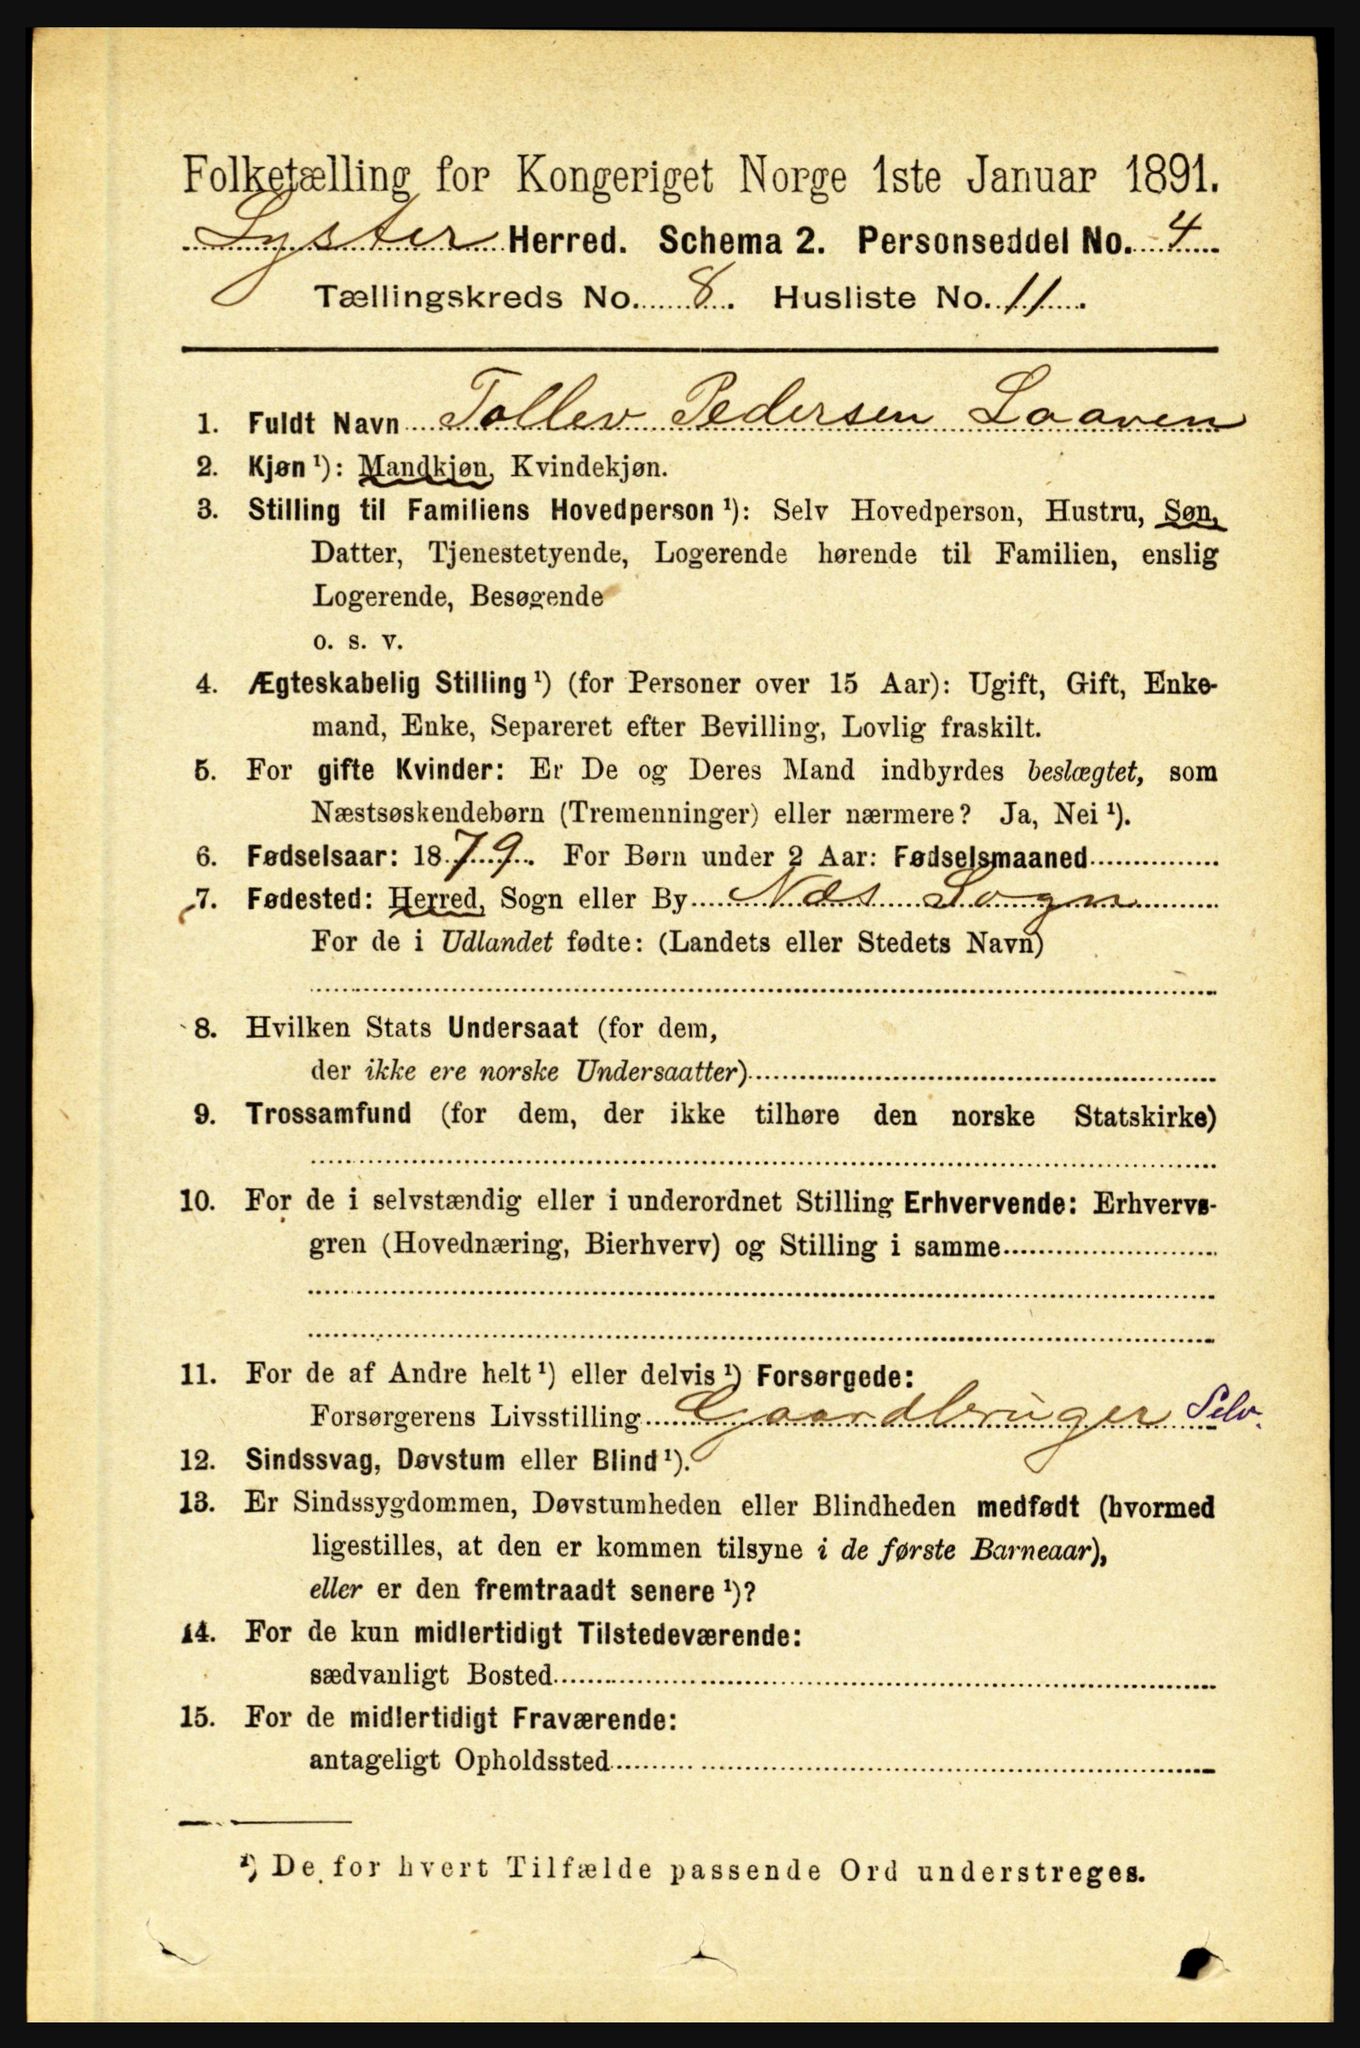 Folketælling for Kongeriget Norge 1ste Januar 1891.
Lyster Herred. Schema 2. Personseddel No. 4
Tællingskreds No. 8. Husliste No. 11.
1. Fuldt Navn Tollev Pedersen Laaven
2. Kjøn ¹): Mandkjøn, Kvindekjøn.
3. Stilling til Familiens Hovedperson ¹): Selv Hovedperson, Hustru, Søn,
Datter, Tjenestetyende, Logerende hørende til Familien, enslig
Logerende, Besøgende
o. s. v.
4. Ægteskabelig Stilling ¹) (for Personer over 15 Aar): Ugift, Gift, Enke-
mand, Enke, Separeret efter Bevilling, Lovlig fraskilt.
5. For gifte Kvinder: Er De og Deres Mand indbyrdes beslægtet, som
Næstsøskendebørn (Tremenninger) eller nærmere? Ja, Nei ¹).
6. Fødselsaar: 1879. For Børn under 2 Aar: Fødselsmaaned
7. Fødested: Herred, Sogn eller By Næs Sogn
For de i Udlandet fødte: (Landets eller Stedets Navn)
8. Hvilken Stats Undersaat (for dem,
der ikke ere norske Undersaatter)
9. Trossamfund (for dem, der ikke tilhøre den norske Statskirke)
10. For de i selvstændig eller i underordnet Stilling Erhvervende: Erhvervs-
gren (Hovednæring, Bierhverv) og Stilling i samme
11. For de af Andre helt ¹) eller delvis ¹) Forsørgede:
Forsørgerens Livsstilling Gaardbruger Selv.
12. Sindssvag, Døvstum eller Blind ¹).
13. Er Sindssygdommen, Døvstumheden eller Blindheden medfødt (hvormed
ligestilles, at den er kommen tilsyne i de første Barneaar),
eller er den fremtraadt senere ¹)?
14. For de kun midlertidigt Tilstedeværende:
sædvanligt Bosted
15. For de midlertidigt Fraværende:
antageligt Opholdssted
¹) De for hvert Tilfælde passende Ord understreges.